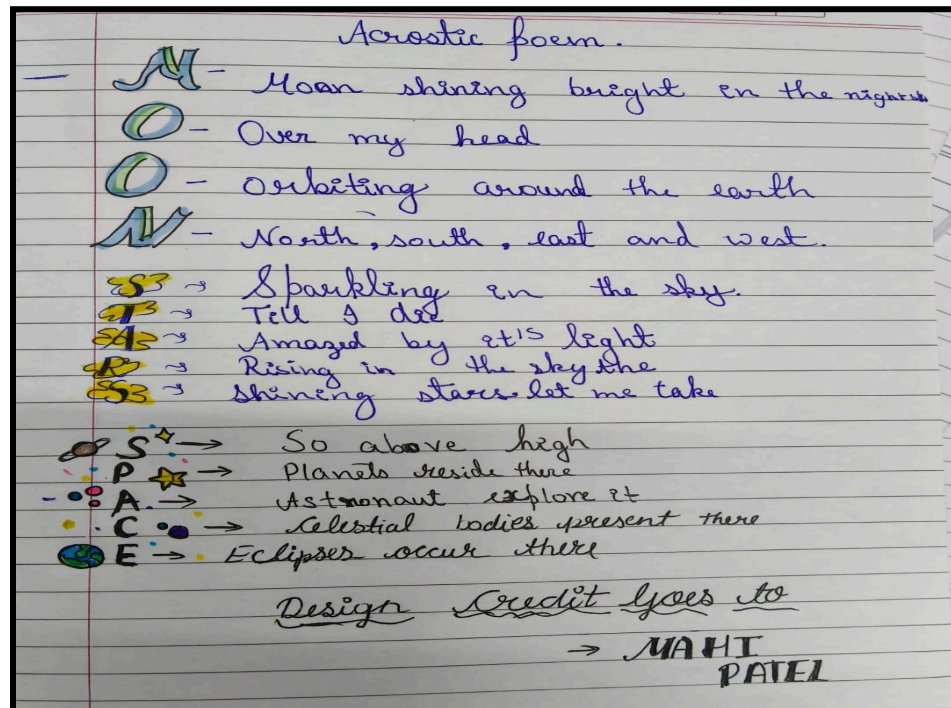 Acrostic poem.
M - Moon shining bright in the night
O - Over my head
O - Orbiting around the earth
N - North, south, east and west.
S → Sparkling in the sky.
T → Till I die
A → Amazed by it's light
R → Rising in the sky the
S → shining stars let me take
S → So above high
P → Planets reside there
A → Astronaut explore it
C → Celestial bodies present there
E → Eclipses occur there
Design Credit Goes to
→ MAHI
PATEL